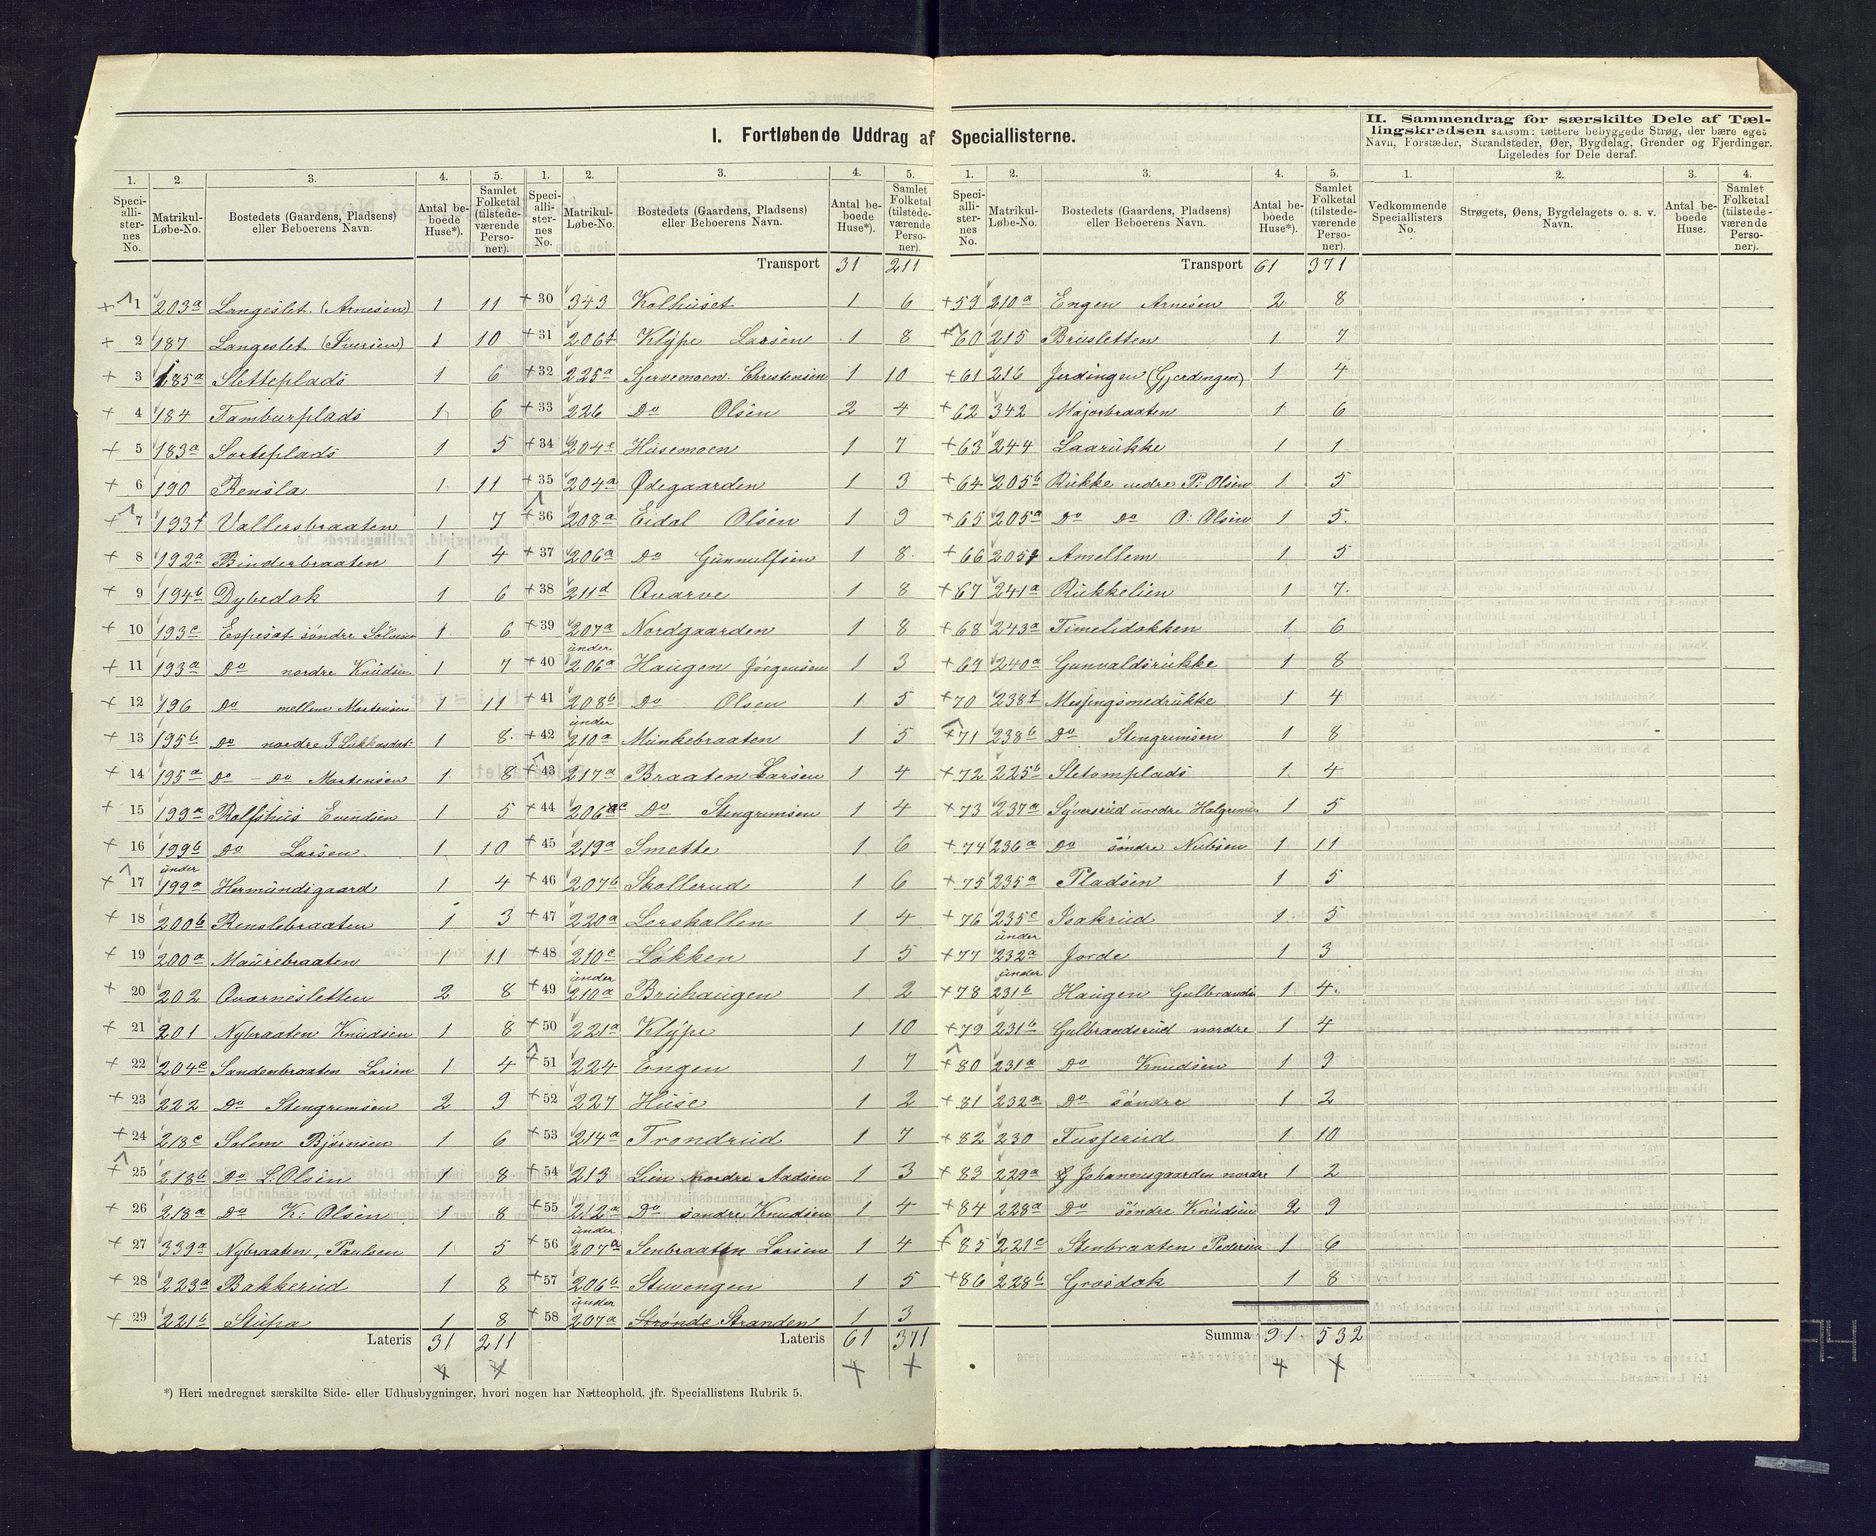 I. Fortløbende Uddrag af Speciallisterne.
II. Sammendrag for særskilte Dele af Tællingskredsen saasom: tættere bebyggede Strøg, der bære eget Navn, Forstæder, Strandsteder, Øer, Bygdelag, Grender og Fjerdinger. Ligeledes for Dele deraf.
1. 2. 3. 4. 5.
Speciallisternes No. Matrikul-Løbe-No. Bostedets (Gaardens, Pladsens) eller Beboerens Navn. Antal beboede Huse*). Samlet Folketal (tilstedeværende Personer).
+ 1 203a Langeslet (Arnesen) 1 11
+ 2 187 Langeslet (Iversen) 1 10
+ 3 185a Sletteplads 1 6
+ 4 184 Tamburplads 1 6
+ 5 183a Sorteplads 1 5
+ 6 190 Rensla 1 11
+ 7 193f Vallersbraaten 1 7
+ 8 192a Binderbraaten 1 4
+ 9 194b Dybedok 1 6
+ 10 193c Espeset söndre 1 6
+ 11 193a Do nordre Knudsen 1 7
+ 12 196 Do mellem Mortensen 1 11
+ 13 195b Do nordre 1 8
+ 14 195a Do – Do Mortensen 1 8
+ 15 199a Rolfshus Evendsen 1 5
+ 16 199b Do Larsen 1 10
+ 17 under 199a Hermundsgaard 1 4
+ 18 200b Renslebraaten 1 3
+ 19 200a Maurebraaten 1 11
+ 20 202 Qvarnesletten 2 8
+ 21 201 Nybraaten Knudsen 1 8
+ 22 204c Sandenbraaten Larsen 1 4
+ 23 222 Do Stengrimsen 2 9
+ 24 218c Solem Bjørnsen 1 6
+ 25 218b Do L. Olsen 1 8
+ 26 218a Do K: Olsen 1 8
+ 27 339a Nybraaten, Paulsen 1 5
+ 28 223a Bakkerud 1 8
+ 29 221b Stupa 1 8
Lateris 31 211
1. 2. 3. 4. 5.
Speciallisternes No. Matrikul-Løbe-No. Bostedets (Gaardens, Pladsens) eller Beboerens Navn. Antal beboede Huse*). Samlet Folketal (tilstedeværende Personer).
Transport 31 211
+ 30 343 Kolhuset 1 6
+ 31 206f Klÿpe Larsen 1 8
+ 32 225a Sjervemoen Christensen 1 10
+ 33 226 Do Olsen 2 4
+ 34 204c Husemoen 1 7
+ 35 204a Ødegaarden 1 3
+ 36 208a Eidal Olsen 1 9
+ 37 206a Do Gunnulfsen 1 8
+ 38 211d Qvarve 1 8
+ 39 207a Nordgaarden 1 8
+ 40 under 206a Haugen Jörgensen 1 3
+ 41 208b Do Olsen 1 5
+ 42 under 210a Munkebraaten 1 5
+ 43 217a Braaten Larsen 1 4
+ 44 206c Do Stengrimsen 1 4
+ 45 219a Smette 1 6
+ 46 207b Skollerud 1 6
+ 47 220a Lerskallen 1 4
+ 48 210c Lökken 1 5
+ 49 under 210a Bruhaugen 1 2
+ 50 221a Klÿpe 1 10
+ 51 224 Engen 1 7
+ 52 227 Huse 1 2
+ 53 214a Trondrud 1 7
+ 54 213 Lien Nordre Aadsen 1 3
+ 55 212a Do söndre Knudsen 1 4
+ 56 under 207a Senbraaten Larsen 1 4
+ 57 206b Stuvengen 1 5
+ 58 under 207a Strønde Stranden 1 3
Lateris 61 371
1. 2. 3. 4. 5.
Speciallisternes No. Matrikul-Løbe-No. Bostedets (Gaardens, Pladsens) eller Beboerens Navn. Antal beboede Huse*). Samlet Folketal (tilstedeværende Personer).
Transport 61 371
+ 59 210a Engen Arnesen 2 8
+ 60 215 Brusletten 1 7
+ 61 216 Jerdingen (Gjerdingen) 1 4
+ 62 342 Majorbraaten 1 6
+ 63 244 Laarukke 1 1
+ 64 205b Rukke nedre P. Olsen 1 5
+ 65 205a Do Do O: Olsen 1 5
+ 66 205f Amellem 1 5
+ 67 241a Rukkelien 1 7
+ 68 243a Timelidokken 1 6
+ 69 240a Gunvaldsrukke 1 8
+ 70 238f Messingsmedrukke 1 4
+ 71 238b Do Stengrimsen 1 8
+ 72 225b Sletomplads 1 4
+ 73 237a Syversrud nordre Halgrimsen 1 5
+ 74 236a Do söndre Nubsen 1 11
+ 75 235a Pladsen 1 5
+ 76 235c Isakrud 1 5
+ 77 under 232a Jorde 1 3
+ 78 under 231b Haugen Gulbrands 1 4
+ 79 231b Gulbrandsrud nordre 1 4
+ 80 231a Do Knudsen 1 9
+ 81 232a Do söndre 1 2
+ 82 230 Tusferud 1 10
+ 83 229a Johannesgaarden nordre 1 2
+ 84 228a Do söndre Knudsen 2 9
+ 85 221c Stenbraaten Pedersen 1 6
+ 86 228b Grosdok 1 8
Summa 91 532
1. 2. 3. 4.
Vedkommende Speciallisters No. Strøgets, Øens, Bygdelagets o. s. v. Navn. Antal beboede Huse. Samlet Folketal (tilstedeværende Personer).
*) Heri medregnet særskilte Side- eller Udhusbygninger, hvori nogen har Natteophold, jfr. Speciallistens Rubrik 5.